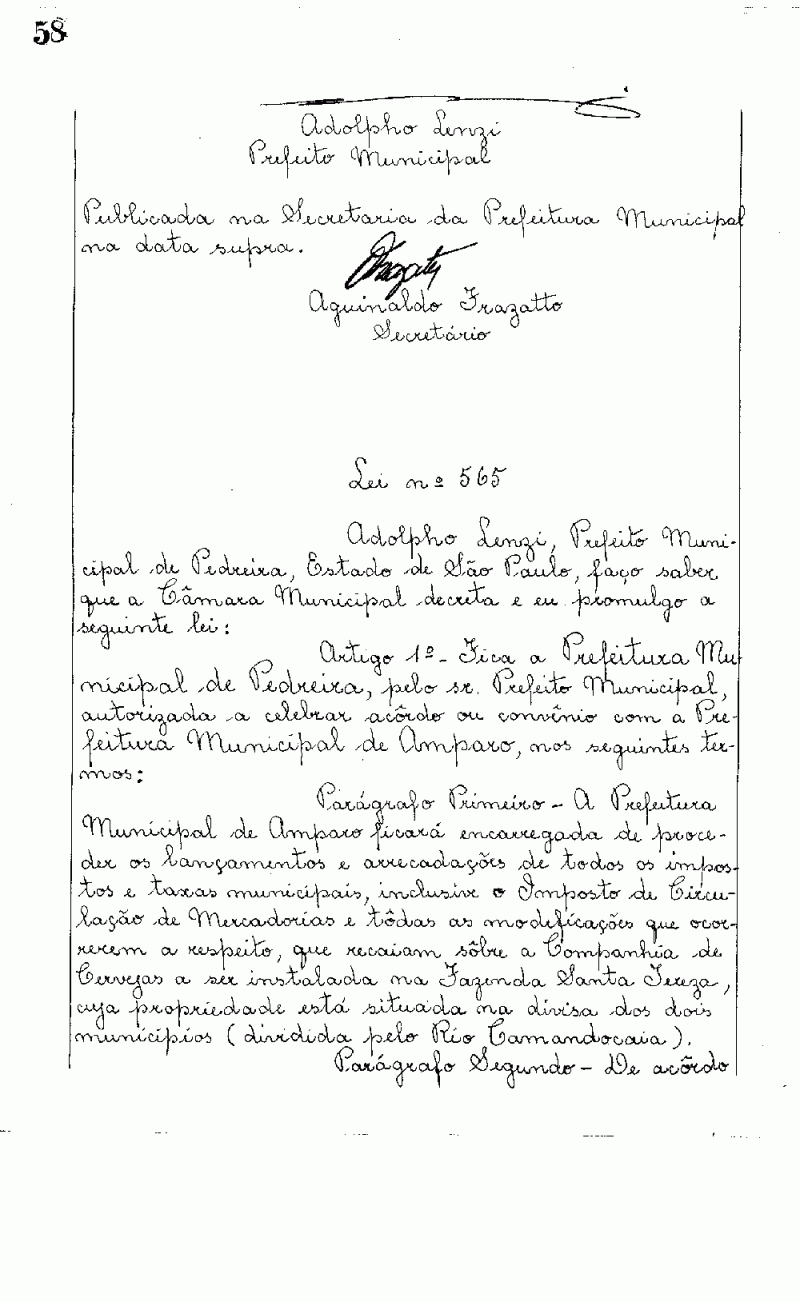 58
Adolpho Lenzi
Prefeito Municipal
Publicada na Secretaria da Prefeitura Municipal
na data supra.
Aguinaldo Frazatto
Secretário
Lei nº 565
Adolpho Lenzi, Prefeito Muni-
cipal de Pedreira, Estado de São Paulo, faço saber
que a Câmara Municipal decreta e eu promulgo a
seguinte lei:
Artigo 1º - Fica a Prefeitura Mu
nicipal de Pedreira, pelo sr. Prefeito Municipal,
autorizada a celebrar acôrdo ou convênio com a Pre-
feitura Municipal de Amparo, nos seguintes ter-
mos:
Parágrafo Primeiro - A Prefeitura
Municipal de Amparo ficará encarregada de proce-
der os lançamentos e arrecadações de todos os impos-
tos e taxas municipais, inclusive o Imposto de Circu-
lação de Mercadorias e tôdas as modeficações que ocor-
rerem a respeito, que recaiam sôbre a Companhia de
Cervejas a ser instalada na Fazenda Santa Tereza,
cuja propriedade está situada na divisa dos dois
municípios (dividida pelo Rio Camandocaia).
Parágrafo Segundo - De acôrdo